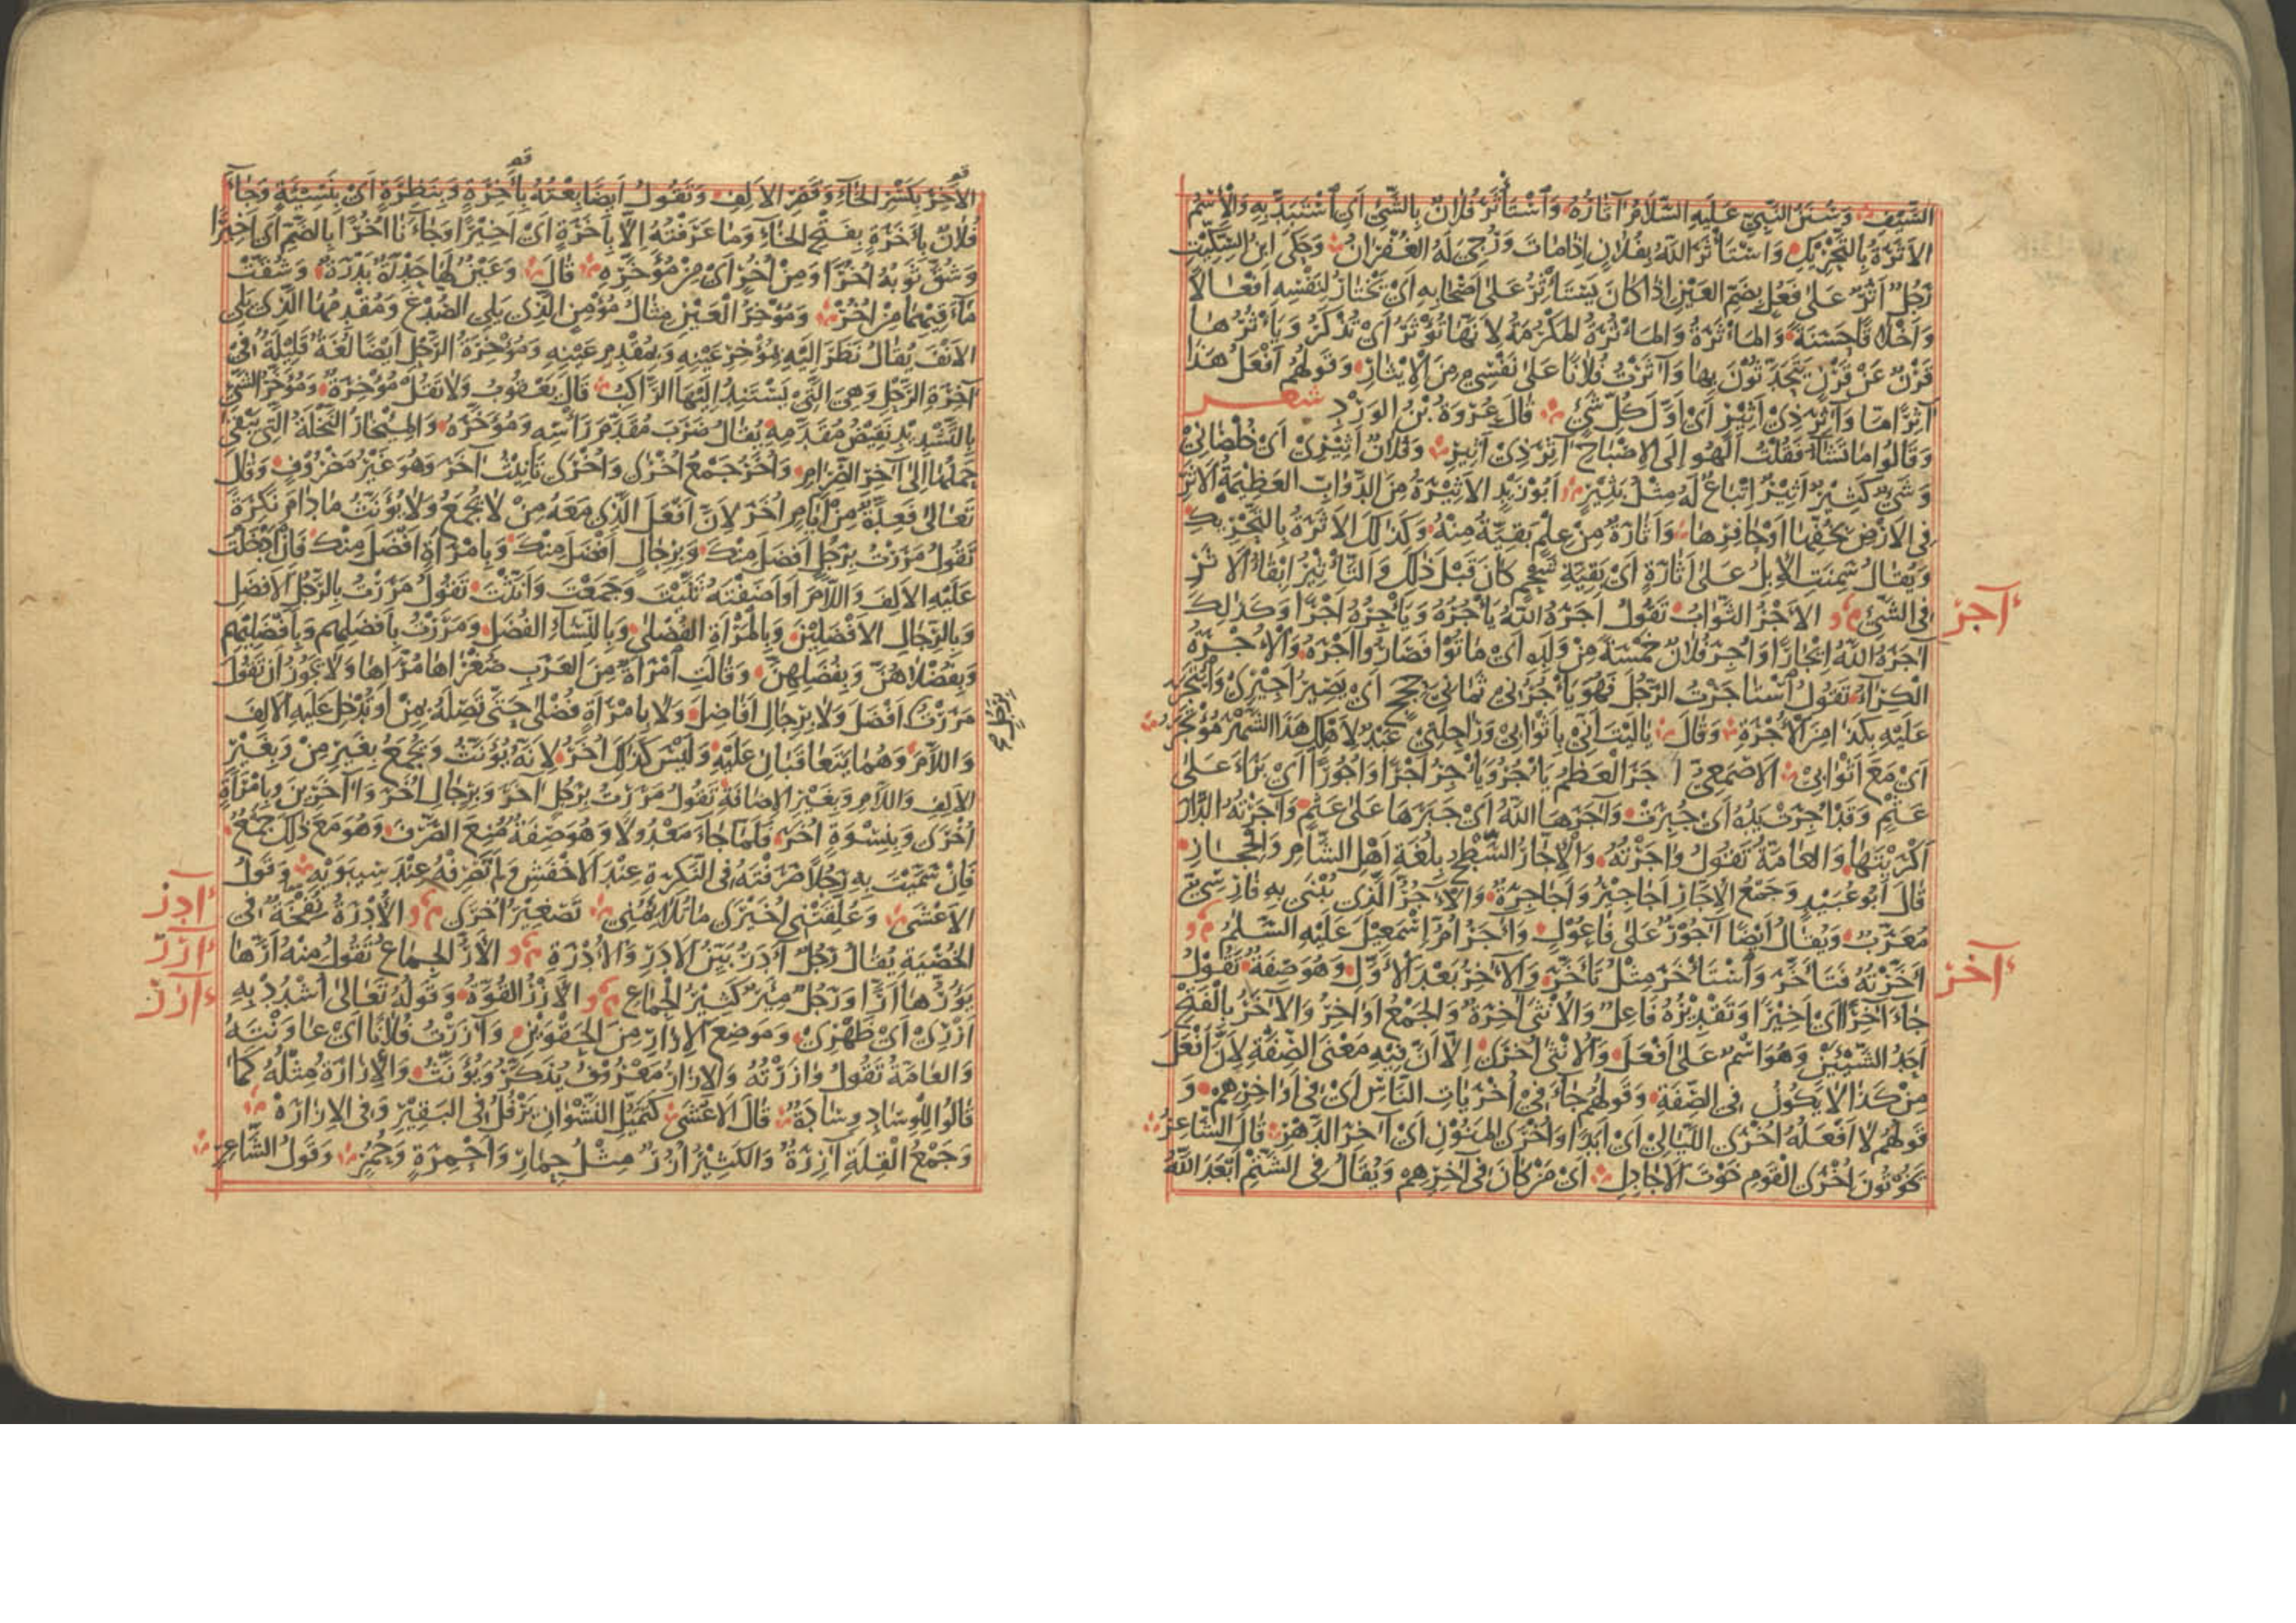 السَّيْفِ وَسُنَنُ النَّبِيِّ عَلَيْهِ السَّلَامُ آثَارُهُ وَاسْتَأْثَرَ فُلَانٌ بِالشَّيْءِ أَيِ اسْتَبَدَّ بِهِ وَالْاِسْمُ
الأَثَرَةُ بِالتَّحْرِيكِ وَاسْتَأْثَرَ اللهُ بِفُلَانٍ إِذَا مَاتَ وَرُجِيَ لَهُ الْغُفْرَانُ وَحَكَى ابْنُ السِّكِّيتِ
رَجُلٌ أَثُرٌ عَلَى فَعُلٍ بِضَمِّ الْعَيْنِ إِذَا كَانَ يَسْتَأْثِرُ عَلَى أَصْحَابِهِ أَيْ يَخْتَارُ لِنَفْسِهِ أَفْعَالًا
وَأَخْلَاقًا حَسَنَةً وَالْمَأْثَرَةُ وَالْمَأْثُرَةُ الْمَكْرُمَةُ لِأَنَّهَا تُؤْثَرُ أَيْ تُذْكَرُ وَيَأْثُرُهَا
قَرْنٌ عَنْ قَرْنٍ يَتَحَدَّثُونَ بِهَا وَآثَرْتُ فُلَانًا عَلَى نَفْسِي مِنَ الْإِيْثَارِ وَقَوْلُهُمْ افْعَلْ هَذَا
آثِرًا مَّا وَآثِرَ ذِي أَثِيْرٍ أَيْ أَوَّلَ كُلِّ شَيْءٍ قَالَ عُرْوَةُ بْنُ الوَرْدِ شعر
وَقَالُوا مَا تَشَاءُ فَقُلْتُ أَلْهُو إِلَى الْإِصْبَاحِ آثِرَ ذِي أَثِيرِ وَفُلَانٌ أَثِيْرِيْ أَيْ خُلْصَانِيْ
وَشَيْءٌ كَثِيْرٌ أَثِيْرٌ اِتْبَاعٌ لَهُ مِثْلُ بَثِيْرٍ أَبُو زَيْدٍ الأَثِيْرَةُ مِنَ الدَّوَابِّ العَظِيْمَةُ الأَثَرِ
فِي الأَرْضِ بِخُفِّهَا أَوْ حَافِرِهَا وَأَثَارَةٌ مِنْ عِلْمٍ بَقِيَّةٌ مِنْهُ وَكَذَلِكَ الأَثَرَةُ بِالتَّحْرِيكِ
وَيُقَالُ سَمِنَتِ الْإِبِلُ عَلَى أَثَارَةٍ أَيْ بَقِيَّةِ شَحْمٍ كَانَ قَبْلَ ذَلِكَ وَالتَّأْثِيْرُ إِبْقَاءُ الأَثَرِ
فِي الشَّيْءِ الأَجْرُ الثَّوَابُ تَقُولُ أَجَرَهُ اللهُ يَأْجُرُهُ وَيَأْجِرُهُ أَجْرًا وَكَذَلِكَ
آجر
آجَرَهُ اللهُ إِيْجَارًا وَأُجِرَ فُلَانٌ خَمْسَةً مِنْ وَلَدِهِ أَيْ مَاتُوا فَصَارُوا أَجْرَهُ وَالْأُجْرَةُ
الْكِرَاءُ تَقُولُ اسْتَأْجَرْتُ الرَّجُلَ فَهُوَ يَأْجُرُنِيْ ثَمَانِيَ حِجَجٍ أَيْ يَصِيْرُ أَجِيْرِيْ وَائْتَجَرَ
عَلَيْهِ بِكَذَا مِنَ الْأُجْرَةِ وَقَالَ يَا لَيْتَ أَنِّي بِأَثْوَابِيْ وَرَاحِلَتِيْ عَبْدٌ لِأَهْلِكِ هَذَا الشَّهْرَ مُؤْتَجَرُ
أَيْ مَعَ أَثْوَابِيْ الأَصْمَعِيُّ أَجَرَ الْعَظْمُ يَأْجُرُ وَيَأْجِرُ أَجْرًا وَأُجُورًا أَيْ بَرَأَ عَلَى
عَثْمٍ وَقَدْ أُجِرَتْ يَدُهُ أَيْ جُبِرَتْ وَآجَرَهَا اللهُ أَيْ جَبَرَهَا عَلَى عَثْمٍ وَآجَرْتُهُ الدَّارَ
أَكْرَيْتُهَا وَالْعَامَّةُ تَقُولُ وَاجَرْتُهُ وَالْإِجَّارُ السَّطْحُ بِلُغَةِ أَهْلِ الشَّامِ وَالْحِجَازِ
قَالَ أَبُو عُبَيْدٍ وَجَمْعُ الْإِجَّارِ أَجَاجِيْرُ وَأَجَاجِرَةٌ وَالْآجُرُّ الَّذِي يُبْنَى بِهِ فَارِسِيٌّ
مُعَرَّبٌ وَيُقَالُ أَيْضًا آجُوْرٌ عَلَى فَاعُوْلٍ وَآجَرُ أُمُّ إِسْمَعِيلَ عَلَيْهِ السَّلَمُ
أَخَّرْتُهُ فَتَأَخَّرَ وَاسْتَأْخَرَ مِثْلُ تَأَخَّرَ وَالْآخِرُ بَعْدَ الْأَوَّلِ وَهُوَ صِفَةٌ تَقُولُ
آخر
جَاءَ آخِرًا أَيْ أَخِيْرًا وَتَقْدِيْرُهُ فَاعِلٌ وَالْأُنْثَى آخِرَةٌ وَالْجَمْعُ أَوَاخِرُ وَالْآخَرُ بِالْفَتْحِ
أَحَدُ الشَّيْئَيْنِ وَهُوَ اسْمٌ عَلَى أَفْعَلَ وَالْأُنْثَى أُخْرَى إِلَّا أَنَّ فِيْهِ مَعْنَى الصِّفَةِ لِأَنَّ أَفْعَلَ
مِنْ كَذَا لَا يَكُونُ فِي الصِّفَةِ وَقَوْلُهُمْ جَاءَ فِيْ أُخْرَيَاتِ النَّاسِ أَيْ فِي أَوَاخِرِهِمْ وَ
قَوْلُهُمْ لَا أَفْعَلُهُ أُخْرَى اللَّيَالِيْ أَيْ أَبَدًا وَأُخْرَى الْمَنُوْنِ أَيْ آخِرَ الدَّهْرِ قَالَ الشَّاعِرُ
أُخْرَى الْقَوْمِ الْأَجَادِلِ أَيْ مَنْ كَانَ فِي آخِرِهِمْ وَيُقَالُ فِي الشَّتْمِ أَبْعَدَ اللهُ
الأَخِرَ بِكَسْرِ الْخَاءِ وَقَصْرِ الأَلِفِ وَتَقُولُ أَيْضًا بِعْتُهُ بِأَخِرَةٍ وَبِنَظِرَةٍ أَيْ بِنَسِيْئَةٍ وَجَاءَ
فُلَانٌ بِأَخَرَةٍ بِفَتْحِ الْخَاءِ وَمَا عَرَفْتُهُ إِلَّا بِأَخَرَةٍ أَيْ أَخِيْرًا وَجَاءَنَا أُخُرًا بِالضَّمِّ أَيْ أَخِيْرًا
وَشَقَّ ثَوْبَهُ أُخُرًا وَمِنْ أُخُرٍ أَيْ مِنْ مُؤَخَّرِهِ قَالَ وَعَيْنٌ لَهَا حَدْرَةٌ بَدْرَةٌ وَشُقَّتْ
مَآقِيهِمَا مِنْ أُخُرْ وَمُؤْخِرُ الْعَيْنِ مِثَالُ مُؤْمِنٍ الَّذِي يَلِي الصُّدْغَ وَمُقْدِمُهَا الَّذِي يَلِي
الأَنْفَ يُقَالُ نَظَرَ إِلَيْهِ بِمُؤْخِرِ عَيْنِهِ وَبِمُقْدِمِ عَيْنِهِ وَمُؤْخِرَةُ الرَّحْلِ أَيْضًا لُغَةٌ قَلِيْلَةٌ فِيْ
آخِرَةِ الرَّحْلِ وَهِيَ الَّتِيْ يَسْتَنِدُ إِلَيْهَا الرَّاكِبُ قَالَ يَعْقُوبُ وَلَا تَقُلْ مُؤْخِرَةٌ وَمُؤَخَّرُ الشَّيْءِ
بِالتَّشْدِيْدِ نَقِيْضُ مُقَدَّمِهِ يُقَالُ ضَرَبَ مُقَدَّمَ رَأْسِهِ وَمُؤَخَّرَهُ وَالْمِئْخَارُ النَّخْلَةُ الَّتِي يَبْقَى
حَمْلُهَا إِلَى آخِرِ الصِّرَامِ وَأُخَرُ جَمْعُ أُخْرَى وَأُخْرَى تَأْنِيْثُ آخَرَ وَهُوَ غَيْرُ مَصْرُوْفٍ وَقَالَ
تَعَالَى فَعِدَّةٌ مِنْ أَيَّامٍ أُخَرَ لِأَنَّ أَفْعَلَ الَّذِي مَعَهُ مِنْ لَا يُجْمَعُ وَلَا يُؤَنَّثُ مَا دَامَ نَكِرَةً
تَقُولُ مَرَرْتُ بِرَجُلٍ أَفْضَلَ مِنْكَ وَبِرِجَالٍ أَفْضَلَ مِنْكَ وَبِامْرَأَةٍ أَفْضَلَ مِنْكَ فَإِنْ أَدْخَلْتَ
عَلَيْهِ الأَلِفَ وَاللَّامَ أَوْ أَضَفْتَهُ ثَنَّيْتَ وَجَمَعْتَ وَأَنَّثْتَ تَقُولُ مَرَرْتُ بِالرَّجُلِ الأَفْضَلِ
وَبِالرِّجَالِ الأَفْضَلِيْنَ وَبِالْمَرْأَةِ الْفُضْلَى وَبِالنِّسَاءِ الْفُضَلِ وَمَرَرْتُ بِأَفْضَلِهِمْ وَبِأَفْضَلِيْهِمْ
وَبِفُضْلَاهُنَّ وَبِفُضَلِهِنَّ وَقَالَتِ امْرَأَةٌ مِنَ الْعَرَبِ صُغْرَاهَا مُرَّاهَا وَلَا يَجُوزُ أَنْ تَقُولَ
مَرَرْتُ أَفْضَلَ وَلَا بِرِجَالٍ أَفَاضِلَ وَلَا بِامْرَأَةٍ فُضْلَى حَتَّى تَصِلَهُ بِمِنْ أَوْ تُدْخِلَ عَلَيْهِ الأَلِفَ
وَاللَّامَ وَهُمَا يَتَعَاقَبَانِ عَلَيْهِ وَلَيْسَ كَذَلِكَ أُخَرُ لِأَنَّهُ يُؤَنَّثُ وَيُجْمَعُ بِغَيْرِ مِنْ وَبِغَيْرِ
الأَلِفِ وَاللَّامِ وَبِغَيْرِ الْإِضَافَةِ تَقُولُ مَرَرْتُ بِرَجُلٍ آخَرَ وَبِرِجَالٍ أُخَرَ وَآخَرِيْنَ وَبِامْرَأَةٍ
أُخْرَى وَبِنِسْوَةٍ أُخَرَ فَلَمَّا جَاءَ مَعْدُولًا وَهُوَ صِفَةٌ مُنِعَ الصَّرْفَ وَهُوَ مَعَ ذَلِكَ جَمْعٌ
فَإِنْ سَمَّيْتَ بِهِ رَجُلًا صَرَفْتَهُ فِي النَّكِرَةِ عِنْدَ الأَخْفَشِ وَلَمْ تَصْرِفْهُ عِنْدَ سِيبَوَيْهِ وَقَوْلُ
الأَعْشَى وَعُلِّقَتْنِي أُخَيْرَى مَا تُلَائِمُنِي تَصْغِيْرُ أُخْرَى الأُدْرَةُ نُفْخَةٌ فِي
آدر
الْخُصْيَةِ يُقَالُ رَجُلٌ آدَرُ بَيِّنُ الأَدَرِ وَالْأُدْرَةِ الأَرُّ الْجِمَاعُ تَقُولُ مِنْهُ أَرَّهَا
أرر
يَؤُرُّهَا أَرًّا وَرَجُلٌ مِئَرٌّ كَثِيْرُ الْجِمَاعِ الأَزْرُ الْقُوَّةُ وَقَوْلُهُ تَعَالَى اشْدُدْ بِهِ
آزر
أَزْرِيْ أَيْ ظَهْرِيْ وَمَوْضِعَ الْإِزَارِ مِنَ الْحَقْوَيْنِ وَآزَرْتُ فُلَانًا أَيْ عَاوَنْتَهُ
وَالْعَامَّةُ تَقُولُ وَازَرْتُهُ وَالْإِزَارُ مَعْرُوْفٌ يُذَكَّرُ وَيُؤَنَّثُ وَالْإِزَارَةُ مِثْلُهُ كَمَا
قَالُوا لِلْوِسَادِ وِسَادَةٌ قَالَ الأَعْشَى كَتَمَيُّلِ النَّشْوَانِ يَرْفُلُ فِي الْبَقِيْرِ وَفِي الْإِزَارَهْ
وَجَمْعُ الْقِلَّةِ آزِرَةٌ وَالْكَثِيْرُ أُزُرٌ مِثْلُ حِمَارٍ وَأَحْمِرَةٍ وَحُمُرٍ وَقَوْلُ الشَّاعِرِ